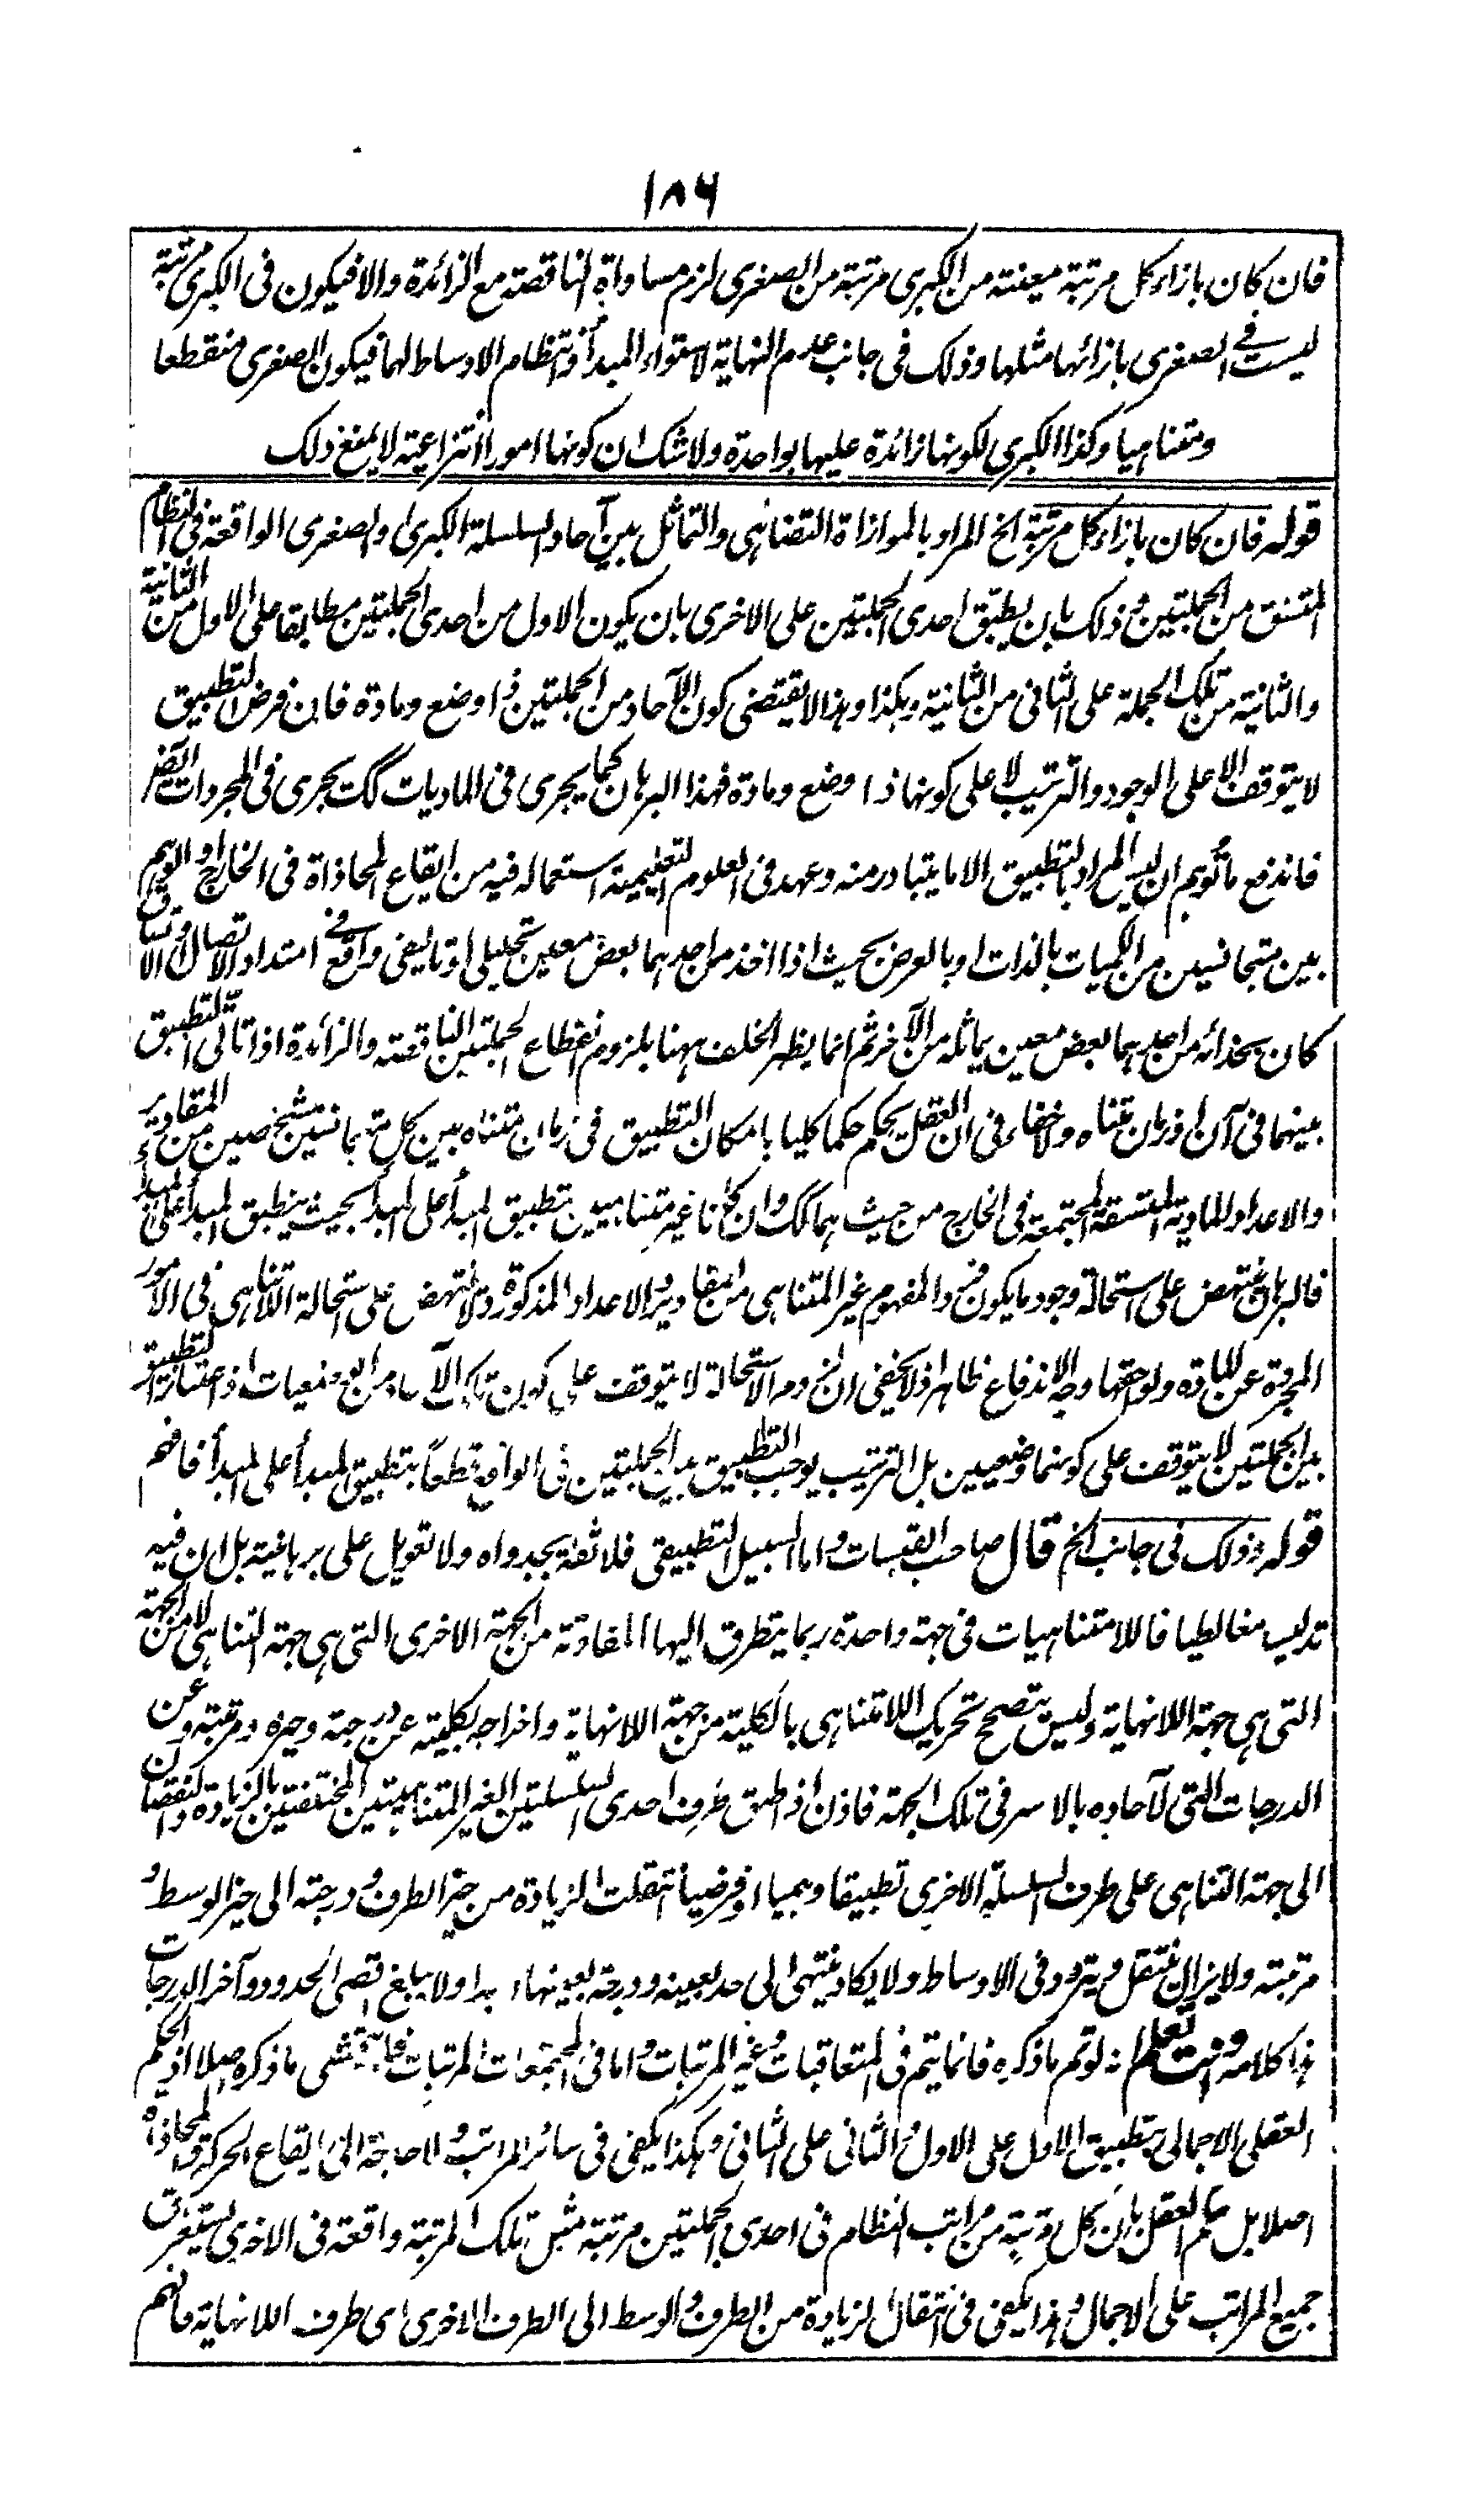 ١٨٦
فان كان بازاء كل مرتبة معينة من الكبرى مرتبة من الصغرى لزم مساواة الناقصة مع الزائدة والا فيكون فى الكبرى مرتبة
ليست فى الصغرى بازائها مثلها وذلك فى جانب عدم النهاية لاستواء المبدأ وانتظام الاوساط لهما فيكون الصغرى منقطعا
ومتناهيا وكذا الكبرى لكونها زائدة عليها بواحدة ولا شك ان كونها امورا انتزاعية لا يمنع ذلك
قوله فان كان بازاء كل مرتبة الخ المراد بالموازاة التضاهى والتماثل بين آحاد السلسلة الكبرى والصغرى الواقعة فى النظام
المتسق من الجملتين وذلك بان يطبق احدى الجملتين على الاخرى بان يكون الاول من احدى الجملتين مطابقا على الاول من الثانية
والثانية من تلك الجملة على الثانى من الثانية وهكذا وهذا لا يقتضى كون الآحاد من الجملتين ذا وضع ومادة فان فرض التطبيق
لا يتوقف الا على الوجود والترتيب لا على كونها ذا وضع ومادة فهذا البرهان كما يجرى فى الماديات كك يجرى فى المجردات ايضا
فاندفع ما توهم ان ليس المراد بالتطبيق الا ما يتبادر منه وعهد فى العلوم التعليمية استعماله فيه من ايقاع المحاذاة فى الخارج او الوهم
بين متجانسين من الكميات بالذات او بالعرض بحيث اذا اخذ من احدهما بعض معين تحليلى او تاليفى واقع فى امتداد الاتصال والاتساق
كان بحذائه من احدهما بعض معين يماثله من الآخر ثم انما يظهر الخلف ههنا بلزوم انقطاع الجملتين الناقصة والزائدة اذا تاتى التطبيق
بينهما فى آن او زمان متناه ولا خفاء فى ان العقل يحكم حكما كليا بامكان التطبيق فى زمان متناه بين كل متجانسين شخصين من المقادير
والاعداد المادية المتسقة المجتمعة فى الخارج من حيث هما كك وان كانا غير متناهيين بتطبيق المبدأ على المبدأ بحيث ينطبق المبدأ على المبدأ
فالبرهان ينتهض على استحالة وجود ما يكون فرد المفهوم غير المتناهى من المقادير والاعداد المذكورة ولا ينتهض على استحالة اللاتناهى فى الامور
المجردة عن المادة ولواحقها وجه الاندفاع ظاهر اذ لا يخفى ان لزوم الاستحالة لا يتوقف على كون تلك الآحاد من الوضعيات اذ اعتبار التطبيق
بين الجملتين لا يتوقف على كونهما وضعيين بل الترتيب يوجب التطبيق بين الجملتين فى الواقع قطعاً بتطبيق المبدأ على المبدأ فافهم
قوله وذلك فى جانب الخ قال صاحب القبسات واما السبيل التطبيقى فلا ثقة بجدواه ولا تعويل على برهانيته بل ان فيه
تدليسا مغالطيا فاللامتناهيات فى جهة واحدة ربما يتطرق اليها المفاوتة من الجهة الاخرى التى هى جهة التناهى لا من الجهة
التى هى جهة اللانهاية وليس يتصحح تحريك اللامتناهى بالكلية من جهة اللانهاية واخراجه بكليته عن درجته وحيزه ومرتبته وعن
الدرجات التى لآحاده بالاسر فى تلك الجهة فاذن اذ اطبق طرف احدى السلسلتين الغير المتناهيتين المختلفتين بالزيادة والنقصان
الى جهة التناهى على طرف السلسلة الاخرى تطبيقا وهميا او فرضيا انتقلت الزيادة من حيز الطرف ودرجته الى حيز الوسط و
مرتبته ولا يزال ينتقل ويتردد فى الاوساط ولا يكاد ينتهى الى حد بعينه ودرجة بعينها ابدا ولا يبلغ اقصى الحدود وآخر الدرجات
هذا كلامه وانت تعلم انه لو تم ما ذكره فانما يتم فى المتعاقبات وغير المرتبات واما فى المجتمعات المرتبات فلا يتمشى ما ذكره اصلا اذ الحكم
العقلى الاجمالى بتطبيق الاول على الاول والثانى على الثانى وهكذا يكفى فى سائر المراتب ولا حاجة الى ايقاع الحركة والمحاذاة
اصلا بل حكم العقل بان كل مرتبة من مراتب النظام فى احدى الجملتين مرتبة مثل تلك المرتبة واقعة فى الاخرى يستغرق
جميع المراتب على الاجمال وهذا يكفى فى انتقال الزيادة من الطرف والوسط الى الطرف الاخرى اى طرف اللانهاية فافهم